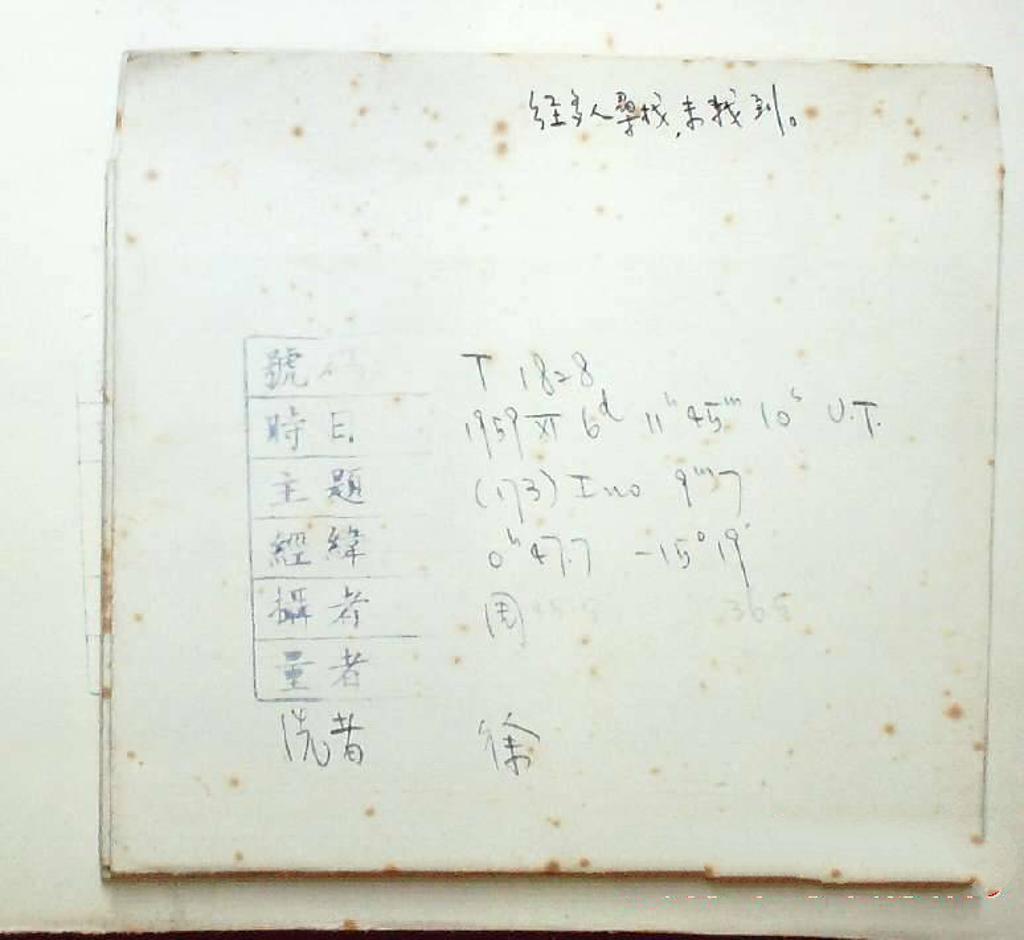 经多人寻找,未找到。
號 T 1828
時日 1959 XI 6ᵈ 11ʰ 45ᵐ 10ˢ U.T.
主題 (173) Ino 9ᵐ7
經緯 0ʰ47.7 -15°19'
攝者 周
量者
洗者 徐